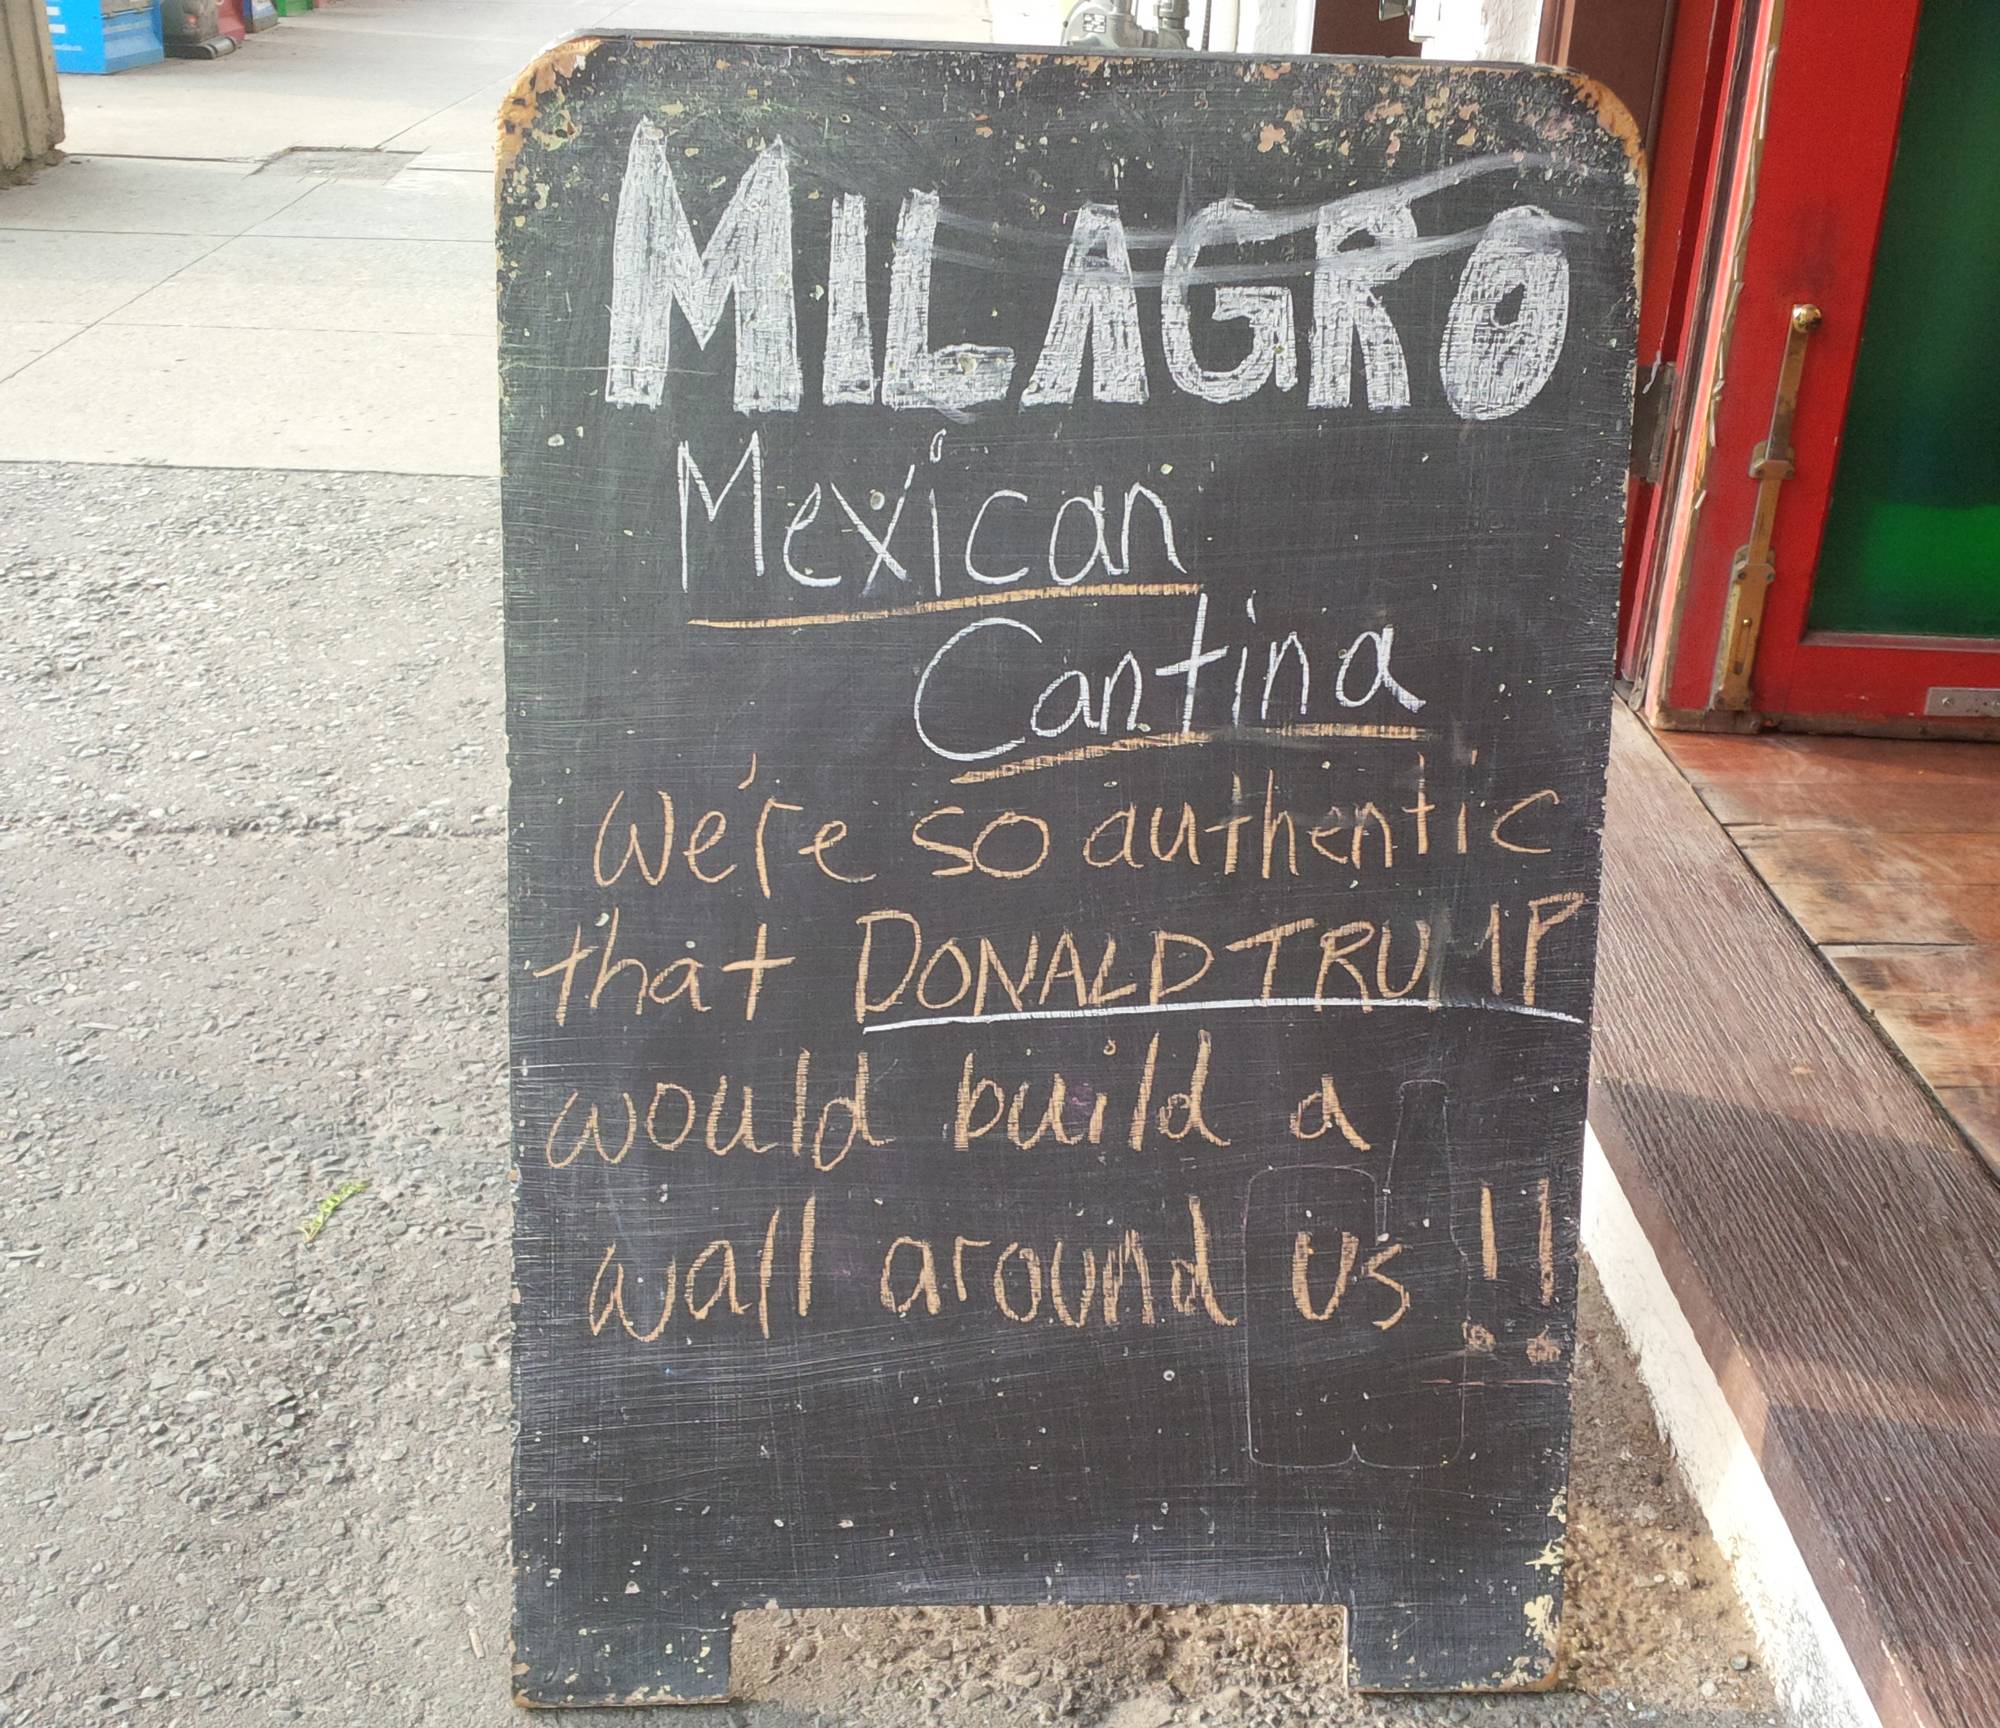 MILAGRO
Mexican
Cantina
We're so authentic
that DONALD TRUMP
would build a
wall around us!!